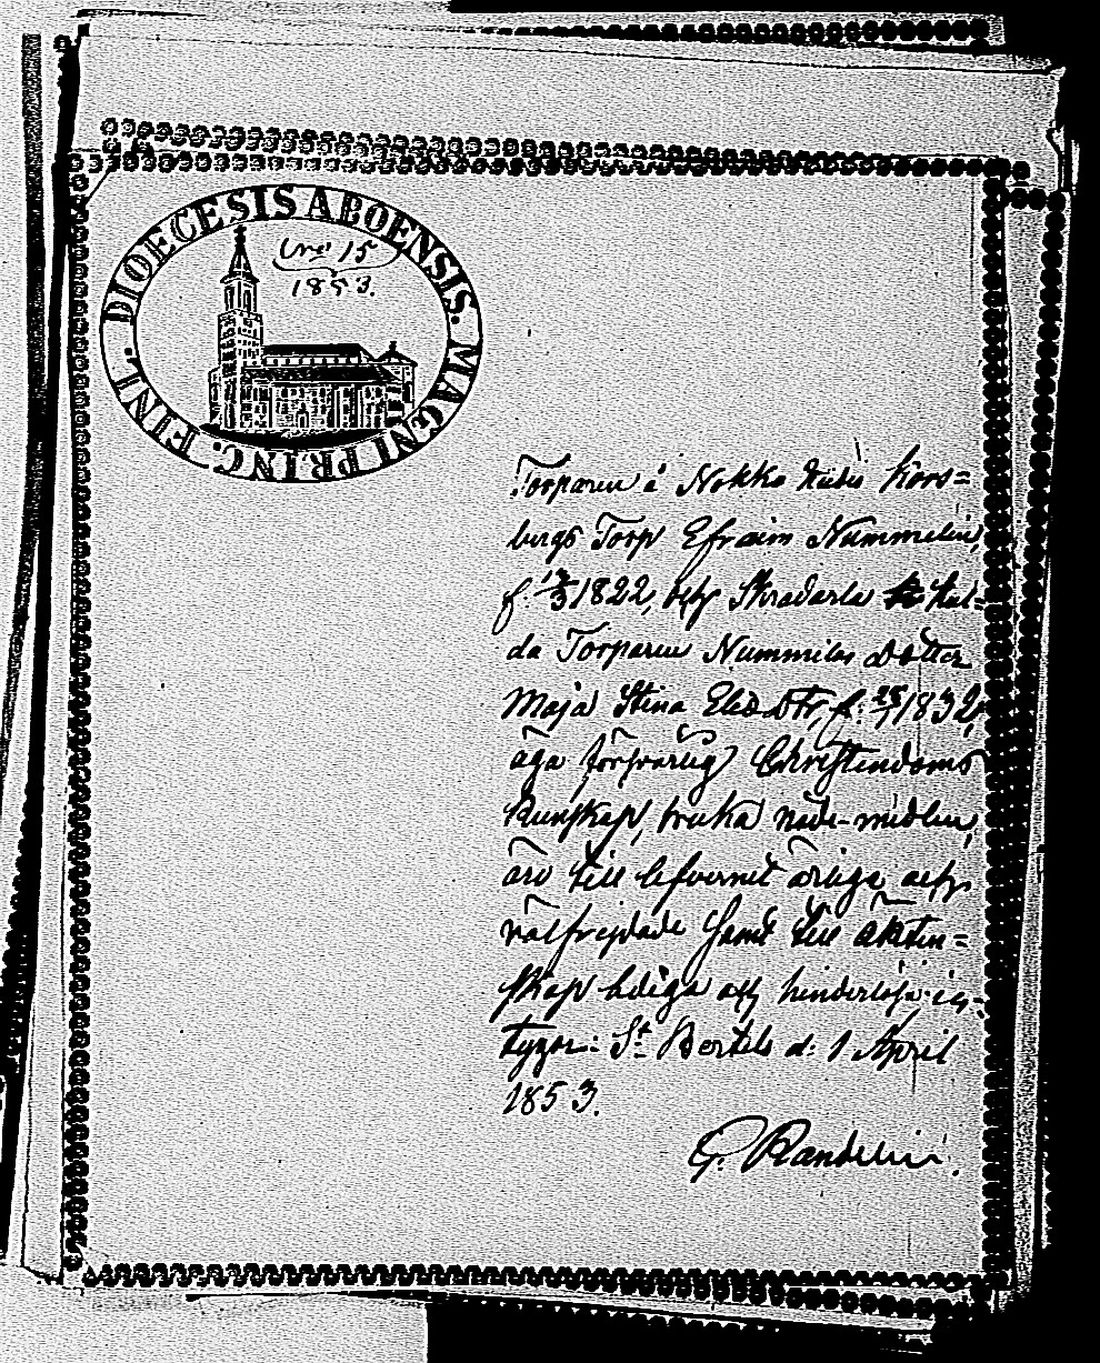 DIOECESIS ABOENSIS. MAGNI PRINC. FINL.
No 15
1853.
Torparen å Nokka Kors=
bergs Torp Efraim Nummelin,
f. 1822, och Skradarla
da Torparen Nummilas dotter
Maja Stina Eliæ Dtr, f: 25/7 1832,
äga försvarlig Christendoms
kunskap, bruka nåde-medlen,
äro till lefvernet ärliga och
välfrejdade samt till äkten=
skap lediga och hinderlösa; in=
tygar: St Bertels d: 1 April
1853.
G. Randelin.